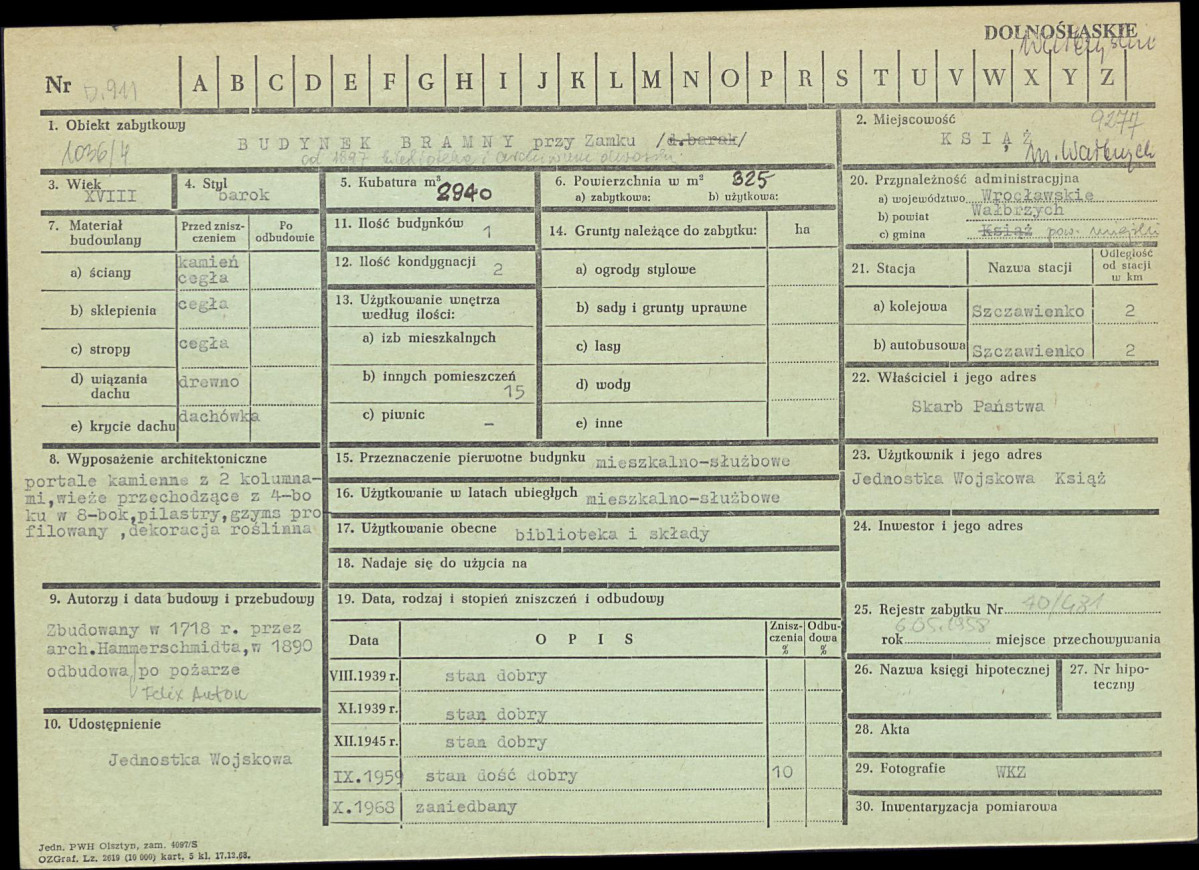 DOLNOŚLĄSKIE
Nr D.911 A B C D E F G H I J K L M N O P R S T U V W X Y Z
1. Obiekt zabytkowy
1036/4 BUDYNEK BRAMNY przy Zamku /d.barak/
od 1897 biblioteka i archiwum
2. Miejscowość
9277
KSIĄŻ
m. Wałbrzych
3. Wiek
XVIII
4. Styl
barok
5. Kubatura m³
2940
6. Powierzchnia w m² 325
a) zabytkowa: b) użytkowa:
20. Przynależność administracyjna
a) województwo Wrocławskie
b) powiat Wałbrzych
c) gmina Książ pow. miejski
7. Materiał budowlany
Przed zniszczeniem
Po odbudowie
a) ściany kamień cegła
b) sklepienia cegła
c) stropy cegła
d) wiązania dachu drewno
e) krycie dachu dachówka
11. Ilość budynków 1
12. Ilość kondygnacji 2
13. Użytkowanie wnętrza
według ilości:
a) izb mieszkalnych
b) innych pomieszczeń
15
c) piwnic –
14. Grunty należące do zabytku: ha
a) ogrody stylowe
b) sady i grunty uprawne
c) lasy
d) wody
e) inne
21. Stacja Nazwa stacji Odległość od stacji w km
a) kolejowa Szczawienko 2
b) autobusowa Szczawienko 2
22. Właściciel i jego adres
Skarb Państwa
8. Wyposażenie architektoniczne
portale kamienne z 2 kolumna-
mi,wieże przechodzące z 4-bo
ku w 8-bok,pilastry,gzyms pro
filowany ,dekoracja roślinna
15. Przeznaczenie pierwotne budynku mieszkalno-służbowe
16. Użytkowanie w latach ubiegłych mieszkalno-służbowe
17. Użytkowanie obecne biblioteka i składy
18. Nadaje się do użycia na
23. Użytkownik i jego adres
Jednostka Wojskowa Książ
24. Inwestor i jego adres
9. Autorzy i data budowy i przebudowy
Zbudowany w 1718 r. przez
arch.Hammerschmidta,w 1890
odbudowa po pożarze
Felix Anton
10. Udostępnienie
Jednostka Wojskowa
19. Data, rodzaj i stopień zniszczeń i odbudowy
Data OPIS Zniszczenia % Odbudowa %
VIII.1939 r. stan dobry
XI.1939 r. stan dobry
XII.1945 r. stan dobry
IX.1959 stan dość dobry 10
X.1968 zaniedbany
25. Rejestr zabytku Nr 40/481
6.05.1958
rok miejsce przechowywania
26. Nazwa księgi hipotecznej
27. Nr hipoteczny
28. Akta
29. Fotografie WKZ
30. Inwentaryzacja pomiarowa
Jedn. PWH Olsztyn, zam. 4097/S
OZGraf. Lz. 2619 (10 000) kart. 5 kl. 17.12.68.